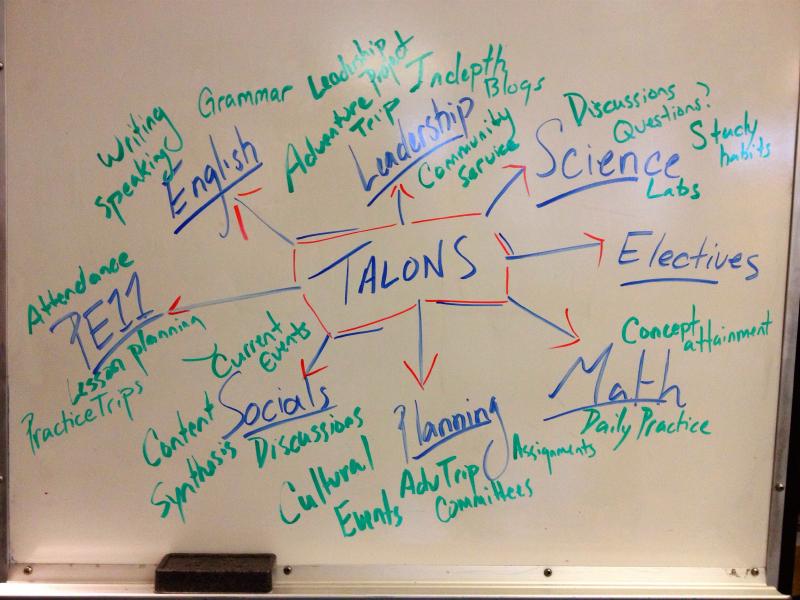 Writing
speaking
Grammar
English
Leadership
Project
Adventure
Trip
Indepth
Blogs
Leadership
Community
Service
Discussions
Questions?
Study
habits
Science
Labs
TALONS
Electives
Attendance
PE11
Lesson planning
Practice Trips
Current
Events
Socials
Content
Synthosis
Discussions
Planning
Cultural
Events
Adv Trip
Committees
Concept
attainment
Math
Daily Practice
Assignments